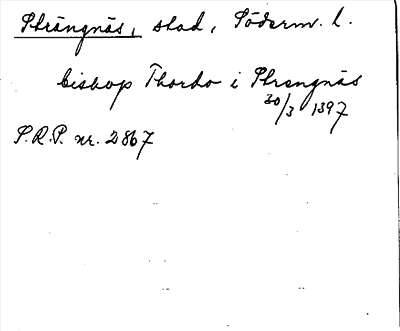 Strängnäs, stad, Söderm. l.
biskop Thordo i Strengnäs
30/3 1397
S.R.P. nr. 2867